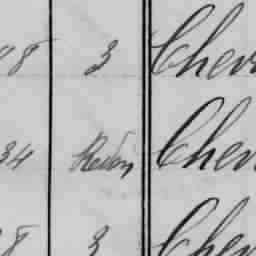 48 3 Chev
34 Redon Chev
38 3 Chev